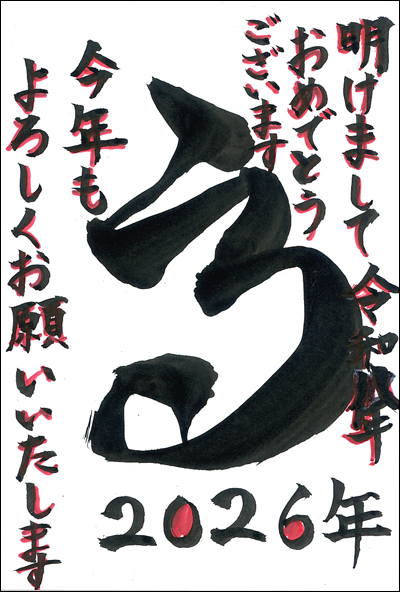 明けまして
おめでとう
ございます
令和八年
今年も
よろしくお願いいたします
2026年